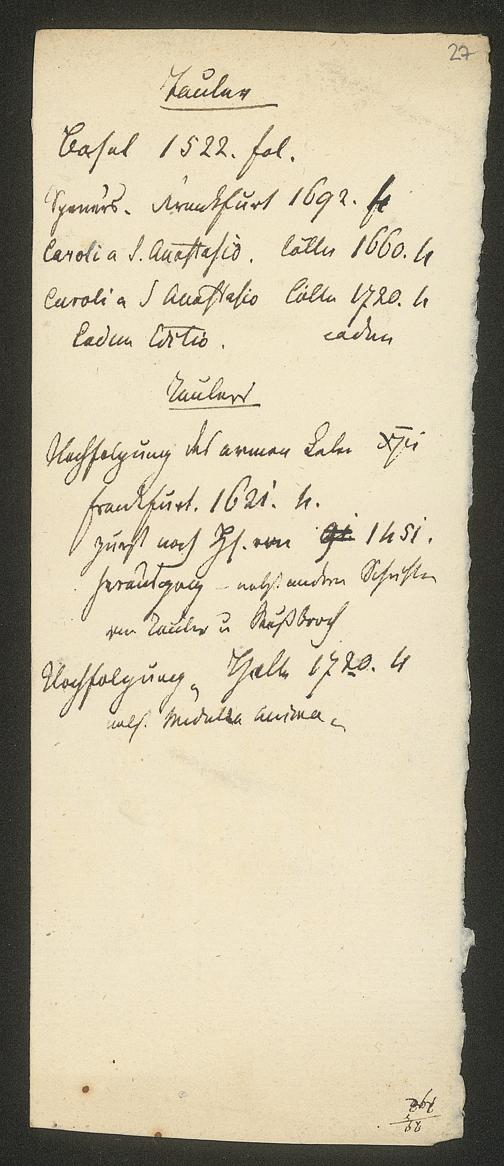 27
Tauler
Basel 1522. fol.
Speners. Frankfurt 1692. 4
Caroli a S. Anastasio. Cölln 1660. 4
Caroli a S Anastasio Cölln 1720. 4
Eadem Editio. eadem
Taulers
Nachfolgung des armen Leben Xsti
Frankfurt. 1621. 4.
zuerst nach Hs. von 1451.
herausgg – nebst andern Schriften
von Tauler u Rußbroch
Nachfolgung, Cölln 1720. 4
nebst Medulla animae